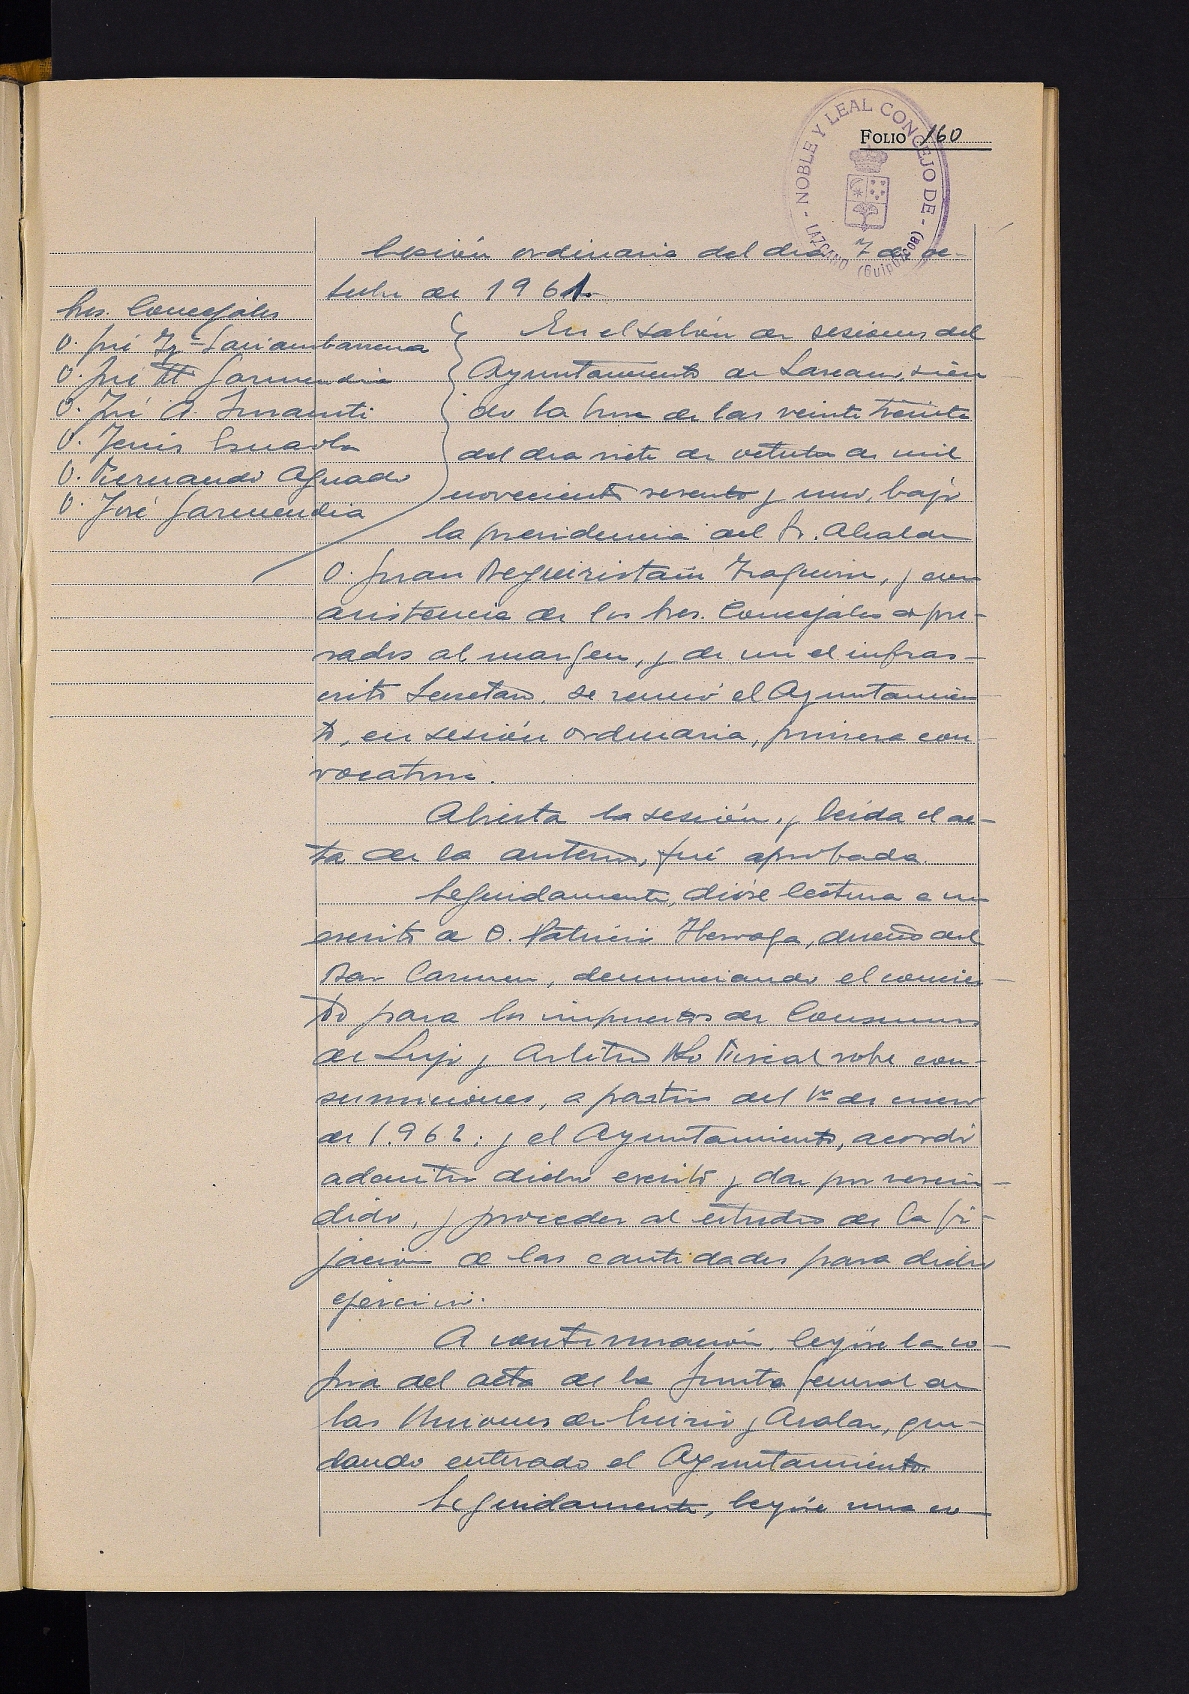 FOLIO 160
NOBLE Y LEAL CONCEJO DE - LAZCANO (Guipúzcoa)
Sesión ordinaria del dia 7 de oc-
tubre de 1961.
Sres. Concejales
D. José Igº Sarianbarrena
D. José Mª Garmendia
D. José A. Imaunti
D. Jesús
D. Bernando Aguado
D. José Garmendia
En el salón de sesiones del
Ayuntamiento de Lazcano, sien
do la hora de las veinte treinta
del dia siete de octubre de mil
novecientos sesenta y uno, bajo
la presidencia del Sr. Alcalde
D. Juan Beguiristain Izaguirre, y con
asistencia de los Sres. Concejales expre-
sados al margen, y de mi el infras-
crito Secretario, se reunió el Ayuntamien
to, en sesión ordinaria, primera con-
vocatoria.
Abierta la sesión, y leida el ac-
ta de la anterior, fué aprobada.
Seguidamente, dióse lectura a un
escrito de D. Patricio, dueño del
Bar Carmen, denunciando el concier-
to para los impuestos de Consumos
de Lujo y Arbitrio No Fiscal sobre con-
sumiciones, a partir del 1º de enero
de 1.962; y el Ayuntamiento, acordó
admitir dicho escrito y dar por rescin-
dido, y proceder al estudio de la fi-
jación de las cantidades para dicho
ejercicio.
A continuación, leyóse la co-
pia del acta de la Junta general de
las Uniones de Enirio y Aralar, que-
dando enterado el Ayuntamiento.
Seguidamente, leyóse una co-